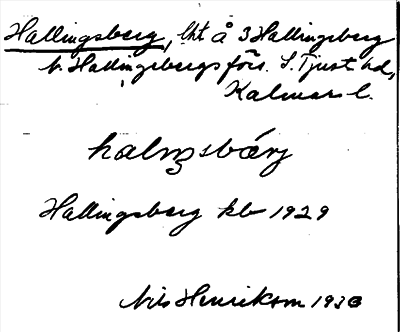 Hallingsberg, lht å 3 Hallingsberg
b. Hallingebergs förs. S. Tjust hd,
Kalmar l.
haliŋsbärj
Hallingsberg kb 1929
Nils Henrikson 1933